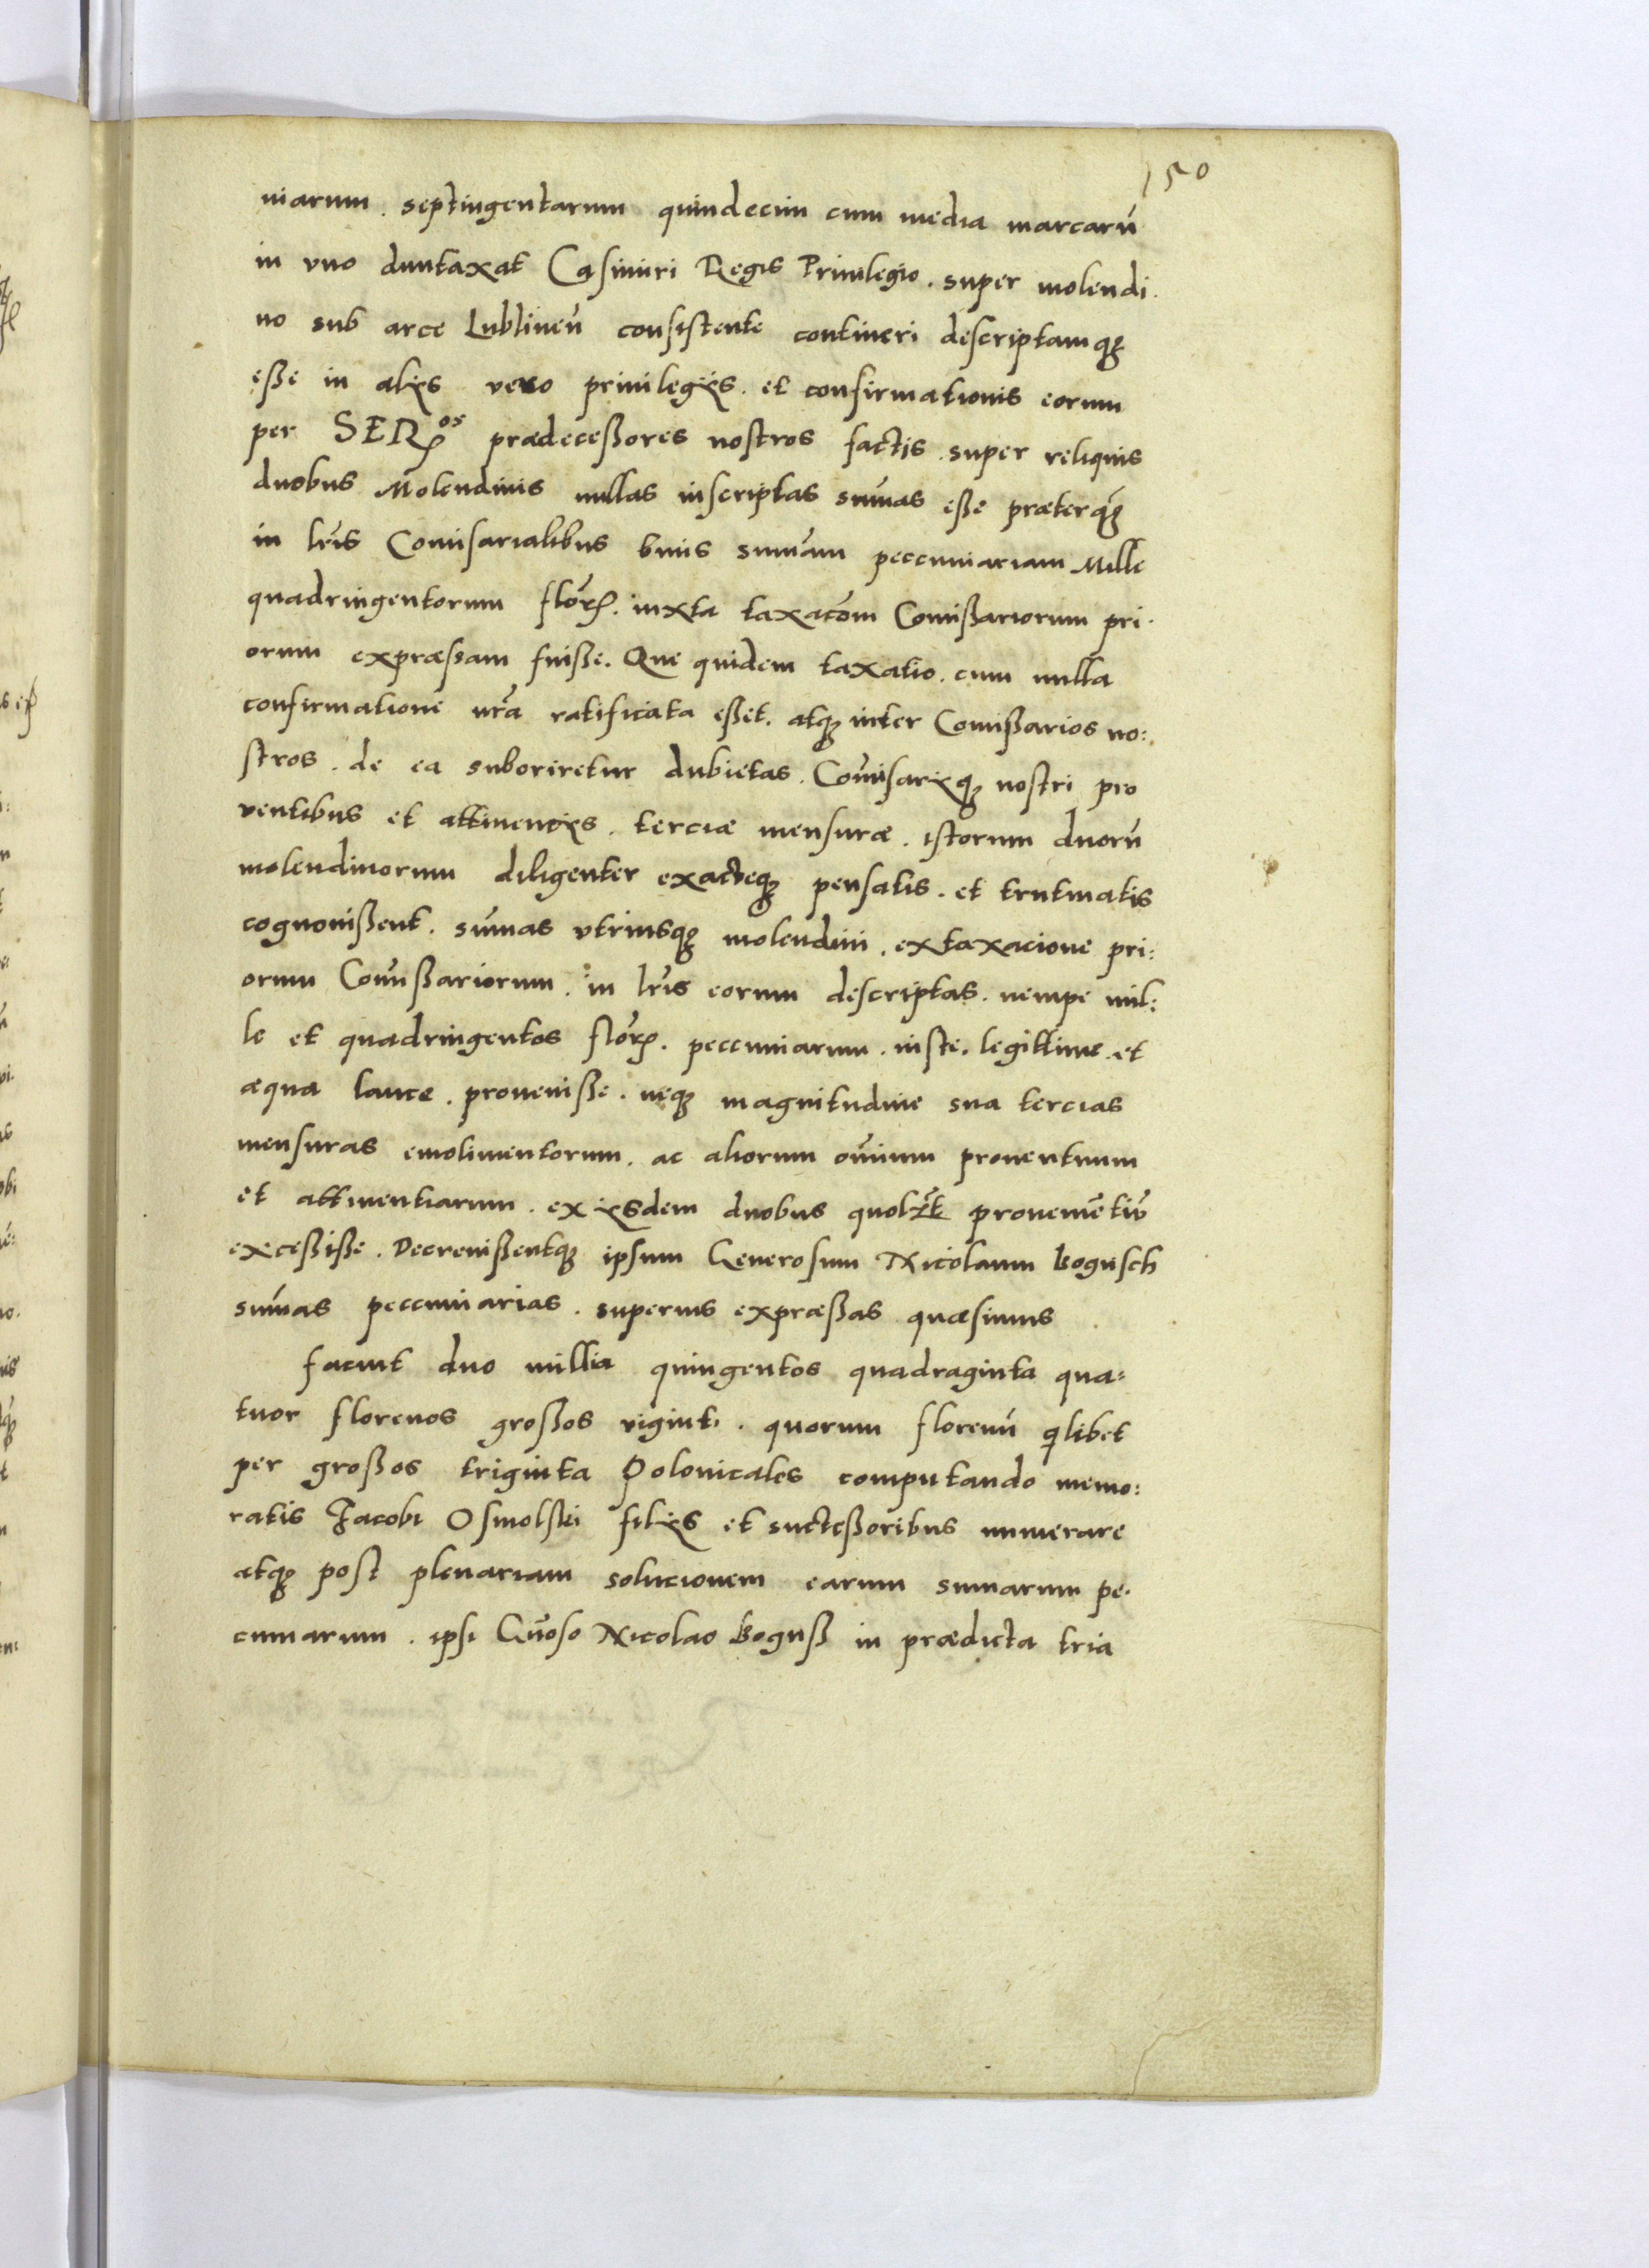 150
niarum. septingentarum quindecim cum media marcarū
in vno duntaxat Casimiri Regis Priuilegio. super molendi.
no sub arce Lublineñ consistente contineri descriptamq₃
eße in alijs vero priuilegijs. et confirmationis eorum
per SERos prædeceßores nostros factis. super reliquis
duobus Molendinis nullas inscriptas sum̄as eße præterq̃
in lr̃is Com̄isarialibus binis sum̄am peccuniariam Mille
quadringentorum flor̃. iuxta taxaco͂m Com̄ißariorum pri.
orum expræssam fuiße. Que quidem taxatio. cum nulla
confirmatione nr̃a ratificata eßet. atq₃ inter Com̄ißarios no:
stros. de ea suboriretur dubietas. Com̄isarijq₃ nostri pro
ventibus et attinencijs. terciæ mensuræ. istorum duorū
molendinorum diligenter exacteq₃ pensatis. et trutinatis
cognouißent. sum̄as vtriusq₃ molendini. ex taxacione pri:
orum Com̄ißariorum. in lr̃is eorum descriptas. nempe mil:
le et quadringentos flor̃. peccuniarum. iuste. legittime. et
æqua lance. proueniße. neq₃ magnitudine sua tercias
mensuras emolimentorum. ac aliorum om̄ium prouentuum
et attinentiarum. ex ijsdem duobus prouenie͂tiū
exceßiße. Decreuißentq₃ ipsum Generosum Nicolaum Bogusch
sum̄as peccuniarias. superius expræßas quæsimus
faciut duo millia quingentos quadraginta qua:
tuor florenos großos viginti. quorum florenū qlibet
per großos triginta Polonicales computando memo:
ratis Jacobi Osmolski filijs et succeßoribus numerare
atq₃ post plenariam solucionem earum sum̄arum pe.
cuniarum. ipsi Gn̄oso Nicolao Boguß in prædicta tria